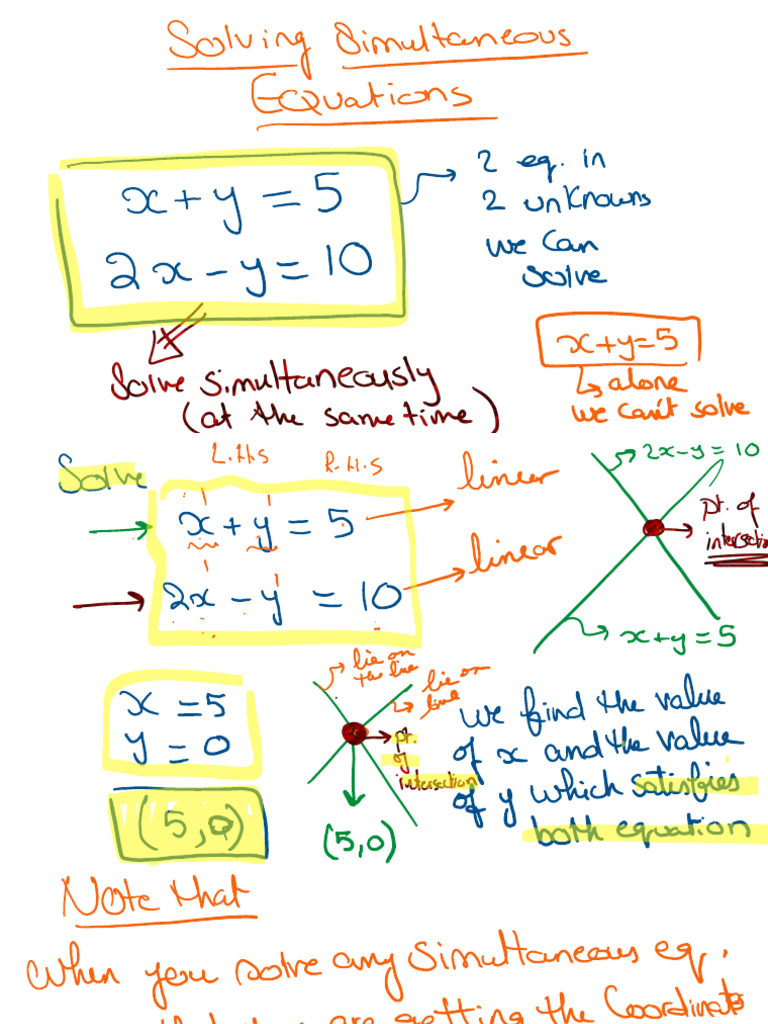 Solving Simultaneous
Equations
x + y = 5
2x - y = 10
2 eq. in
2 unknowns
we can
solve
Solve simultaneously
(at the same time)
x+y=5
alone
we can't solve
Solve
L.H.S
R.H.S
x + y = 5
2x - y = 10
linear
linear
2x-y=10
pt. of
intersectio
x+y=5
x = 5
y = 0
(5,0)
lie on
the line
lie on
line
pt.
of
intersection
(5,0)
we find the value
of x and the value
of y which satisfies
both equation
Note that
When you solve any simultaneous eq.
that you are getting the Coordinate